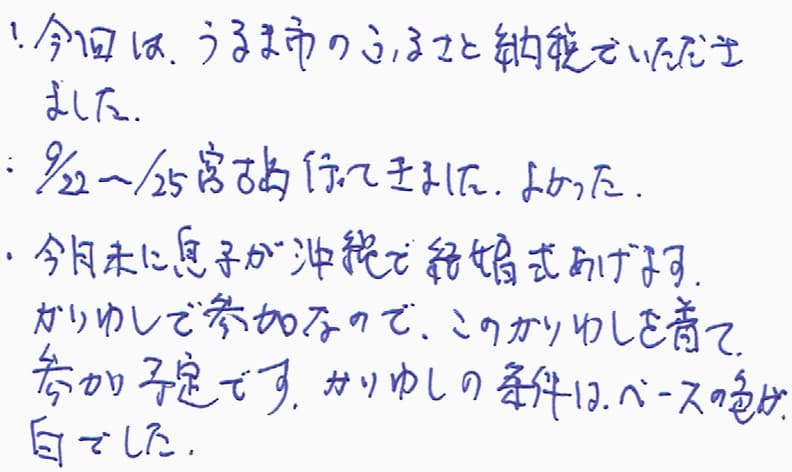 ・今回は、うるま市のふるさと納税でいただき
ました.
・9/22〜/25宮古島行ってきました.よかった.
・今月末に息子が沖縄で結婚式あげます.
かりゆしで参加なので、このかりゆしを着て、
参加予定です.かりゆしの条件は、ベースの色が、
白でした.